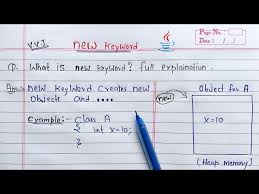 V.V.I
new keyword
Page No.:
Date: / /
Q. What is new keyword? full explaination.
Ans:- new keyword creates new
objects and ....
new
Object for A
Example:- Class A
{ int x=10;
}
x=10
(Heap memory)